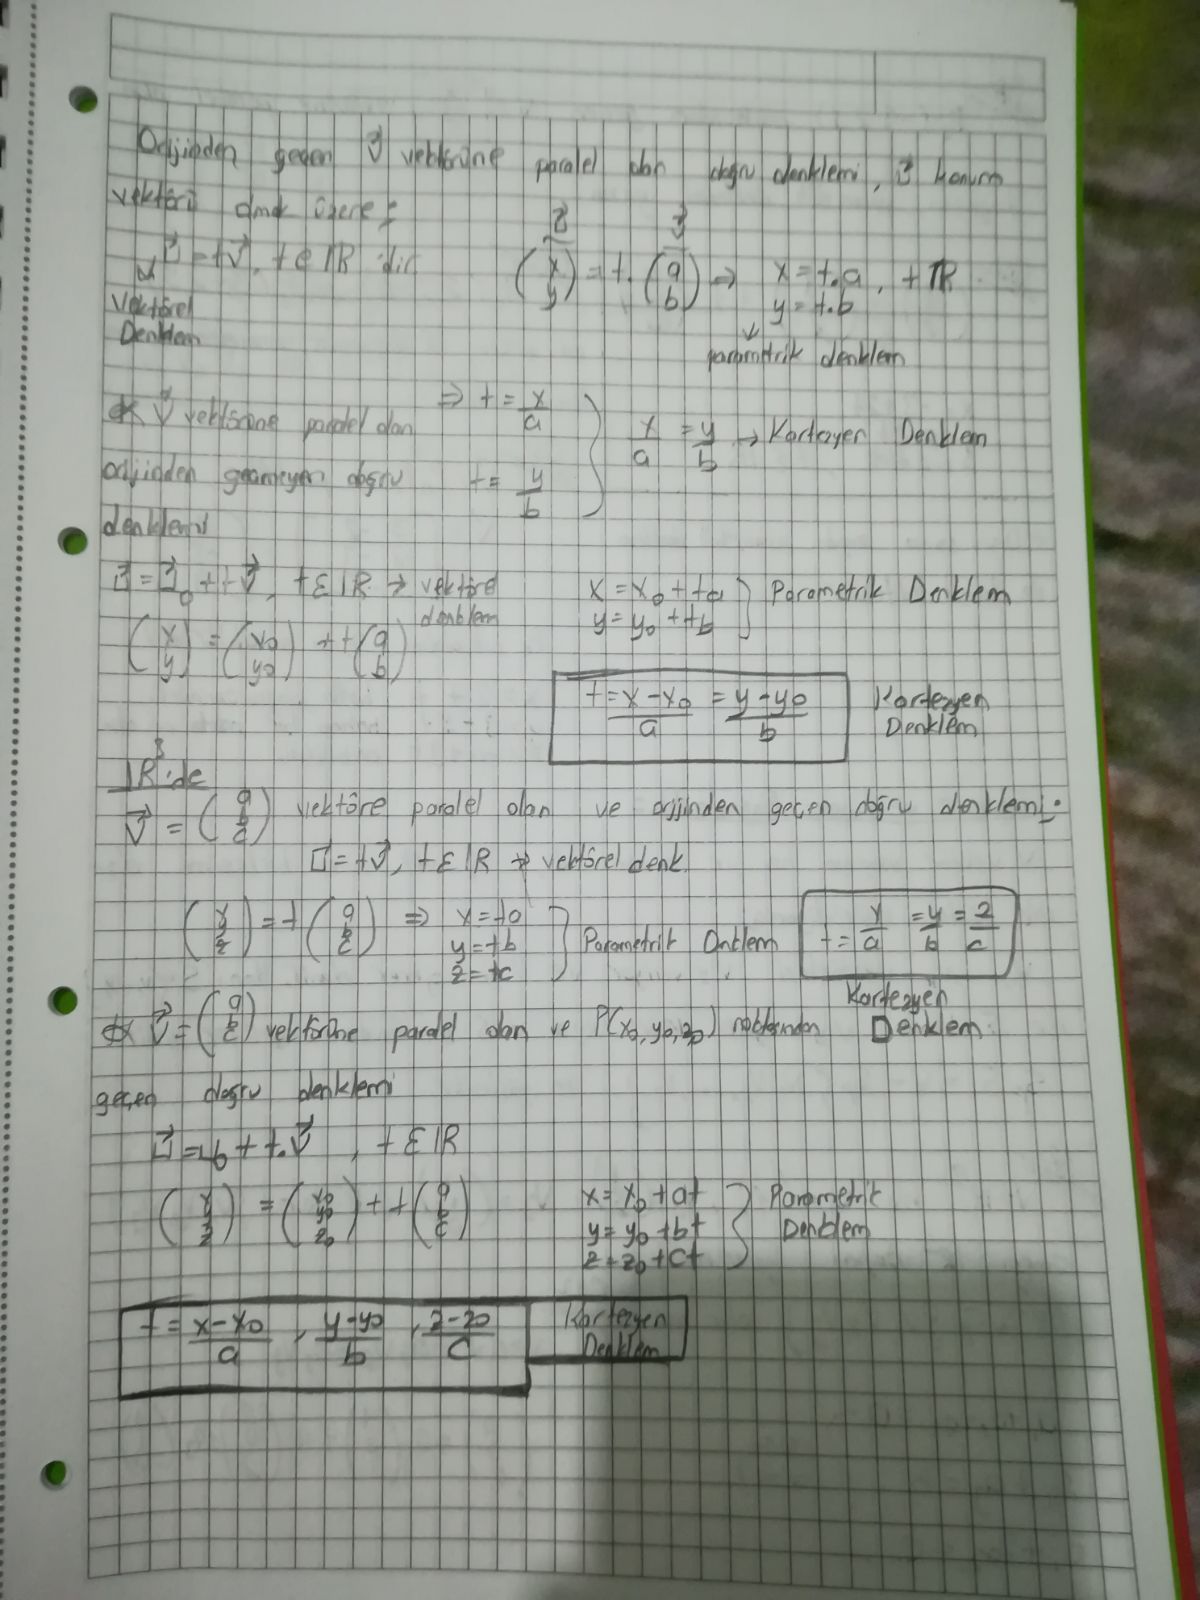 Orijinden geçen v⃗ vektörüne paralel olan doğru denklemi, u⃗ konum
vektörü olmak üzere;
u⃗ = tv⃗, t ∈ IR dir.
(x y) = t. (a b) ⇒ x = t.a, t IR
y = t.b
Vektörel
Denklem
parametrik denklem
v⃗ vektörüne paralel olan
orijinden geçmeyen doğru
denklemi
⇒ t = x/a
t = y/b
x/a = y/b → Kartezyen Denklem
u⃗ = u⃗₀ + tv⃗, t ∈ IR → vektörel
denklem
(x y) = (x0 y0) + t (a b)
x = x0 + ta
y = y0 + tb
Parametrik Denklem
t = x - x0/a = y - y0/b
Kartezyen
Denklem
IR³ de
v⃗ = (a b c) vektöre paralel olan ve orijinden geçen doğru denklemi:
u⃗ = tv⃗, t ∈ IR → vektörel denk.
(x y z) = t (a b c) ⇒ x = ta
y = tb
z = tc
Parametrik Denklem
t = x/a = y/b = z/c
Kartezyen
Denklem
v⃗ = (a b c) vektörüne paralel olan ve P(x0, y0, z0) noktasından
geçen doğru denklemi
u⃗ = u0 + t.v⃗, t ∈ IR
(x y z) = (x0 y0 z0) + t (a b c)
x = x0 + at
y = y0 + bt
z = z0 + ct
Parametrik
Denklem
t = x - x0/a, y - y0/b, z - z0/c
Kartezyen
Denklem